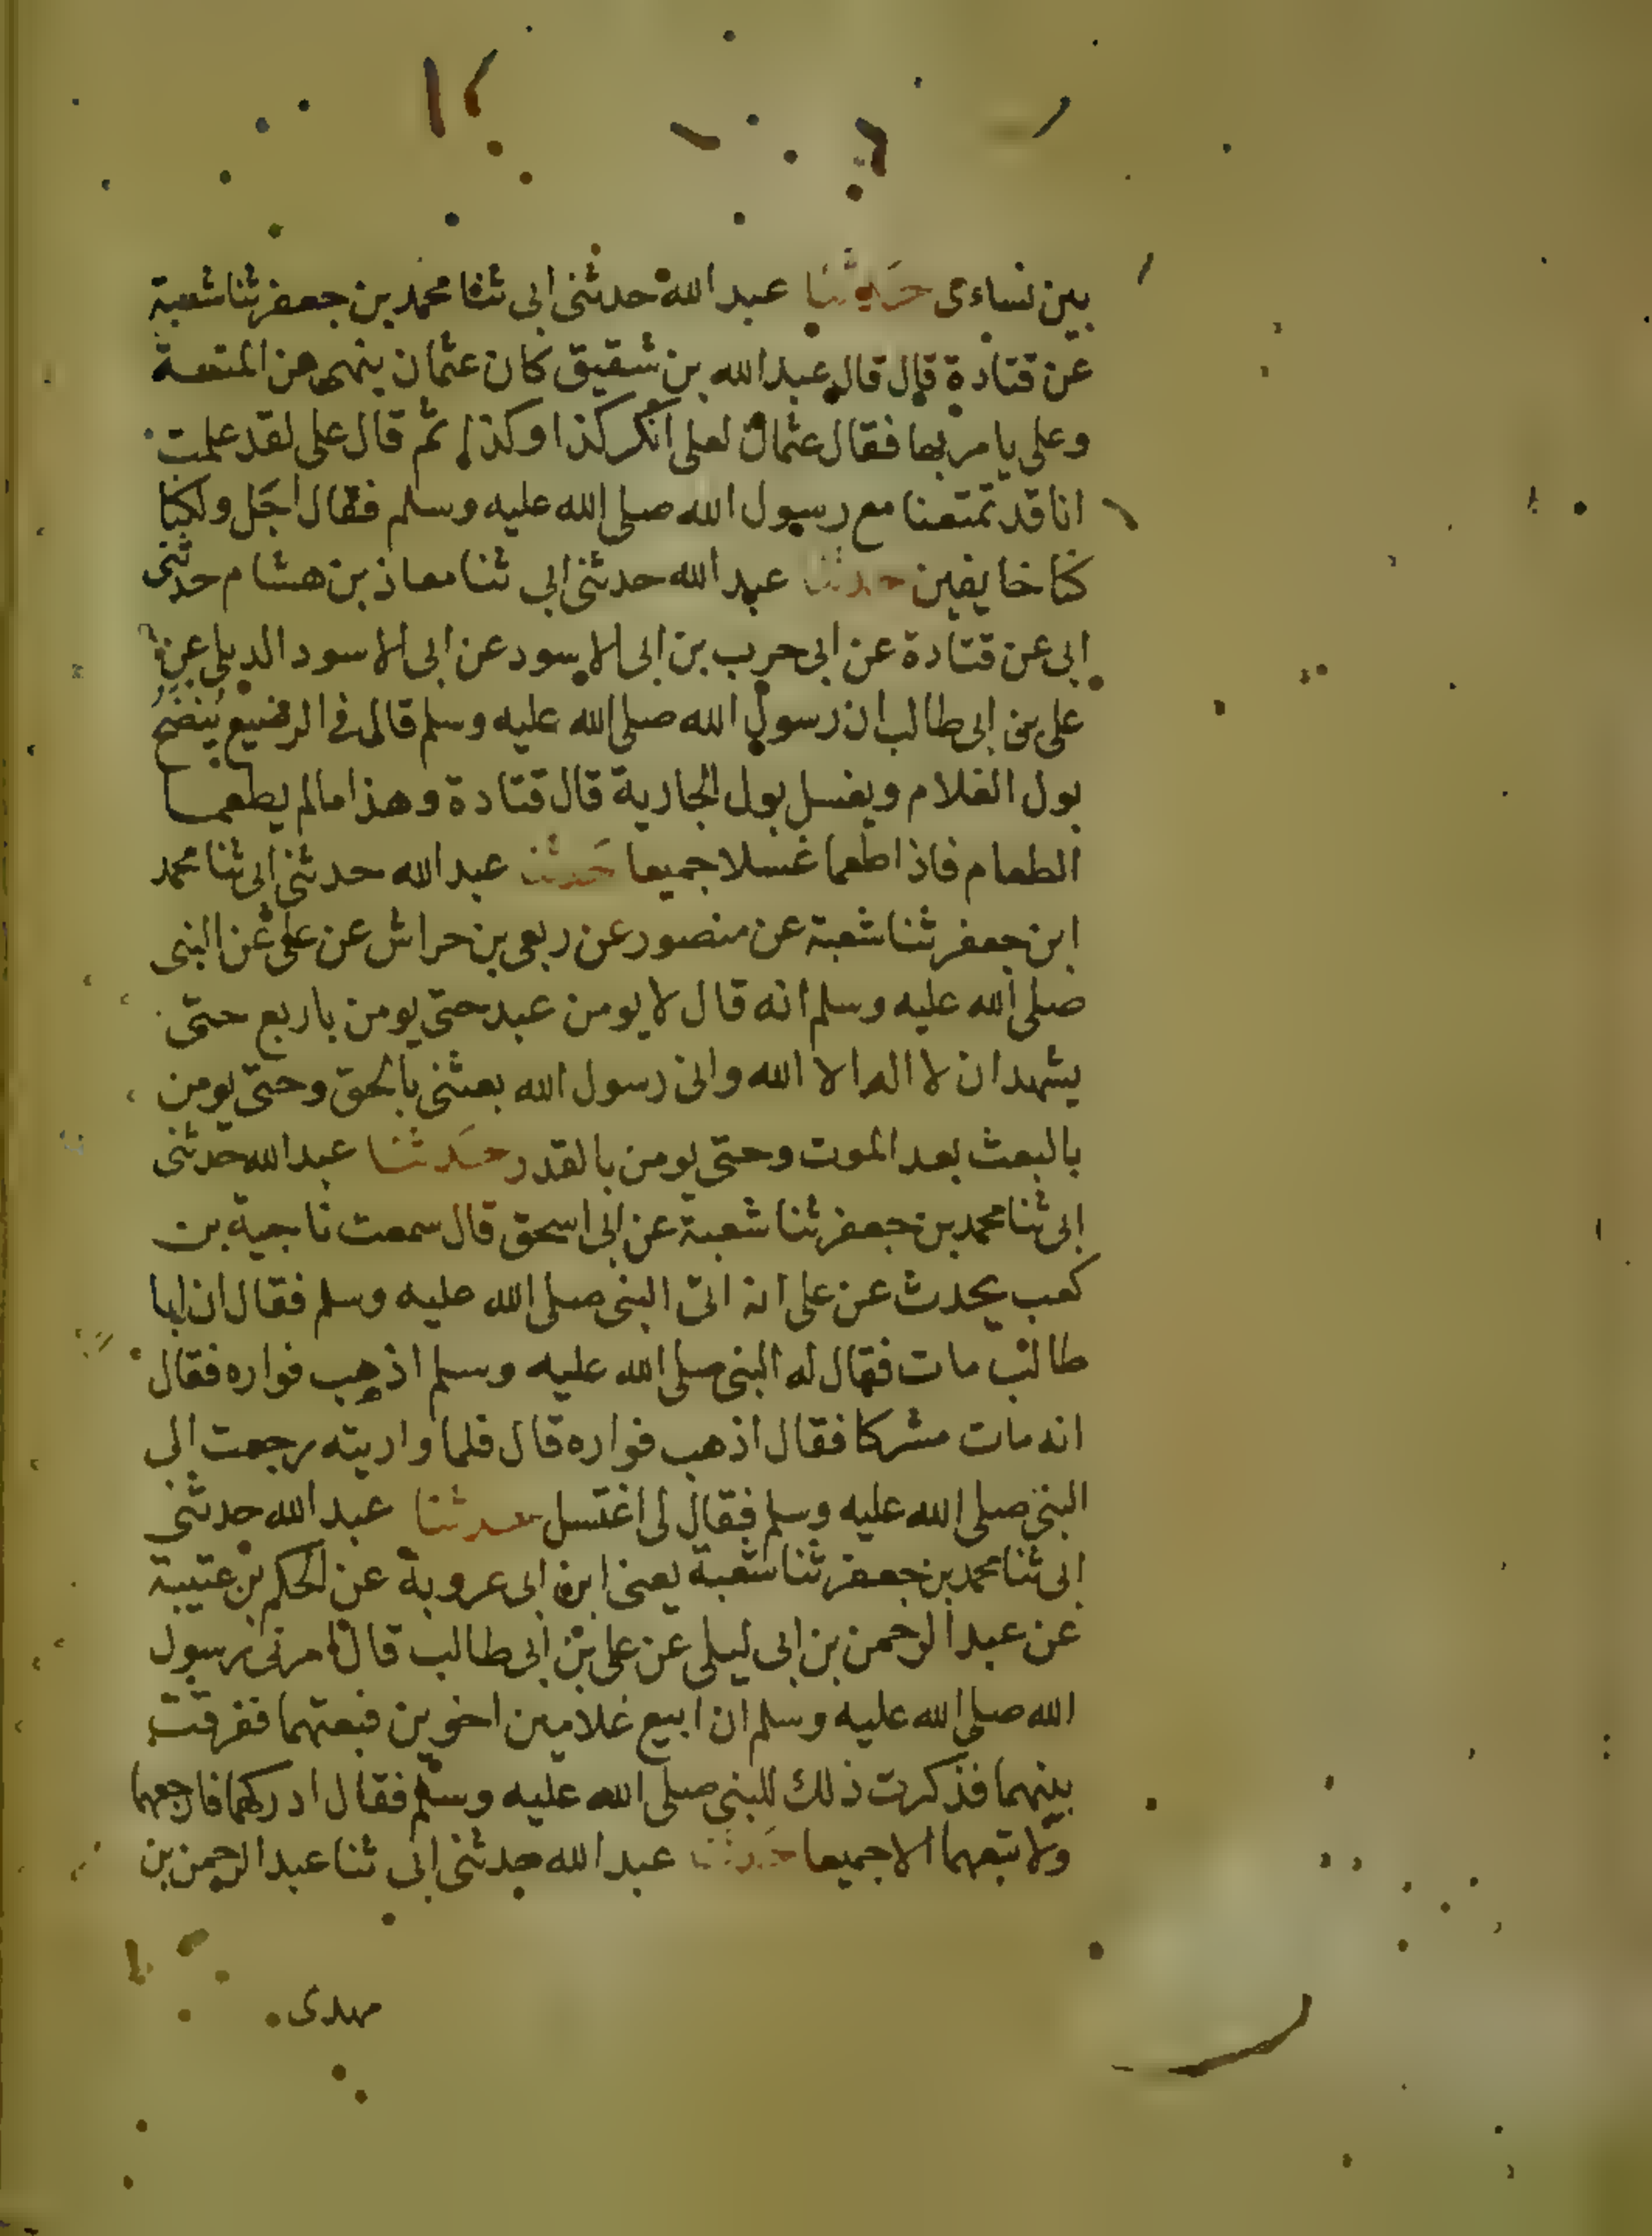 بين نساءى حدثنا عبد الله حدثنى ابى ثنا محمد بن جعفر ثنا شعبة
عن قتادة قال قال عبد الله بن شقيق كان عثمان ينهى عن المتعة
وعلى يامر بها فقال عثمان لعلى انكر كذا وكذا ثم قال على لقد علمت
انا قد تمتعنا مع رسول الله صلى الله عليه وسلم فقال اجل ولكنا
كنا خايفين حدثنا عبد الله حدثنى ابى ثنا معاذ بن هشام حدثنى
ابى عن قتادة عن ابى حرب بن ابى الاسود عن ابى الاسود الديلى عن
على بن ابى طالب ان رسول الله صلى الله عليه وسلم قال فى الرضيع ينضح
بول الغلام ويغسل بول الجارية قال قتادة وهذا مالم يطعما
الطعام فاذا طعما غسلا جميعا حدثنا عبد الله حدثنى ابى ثنا محمد
ابن جعفر ثنا شعبة عن منصور عن ربعى بن حراش عن على عن النبى
صلى الله عليه وسلم انه قال لا يومن عبد حتى يومن باربع حتى
يشهد ان لا اله الا الله وانى رسول الله بعثنى بالحق وحتى يومن
بالبعث بعد الموت وحتى يومن بالقدر حدثنا عبد الله حدثنى
ابى ثنا محمد بن جعفر ثنا شعبة عن ابى اسحق قال سمعت ناجية بن
كعب يحدث عن على انه اتى النبى صلى الله عليه وسلم فقال ان ابا
طالب مات فقال له النبى صلى الله عليه وسلم اذهب فواره فقال
انه مات مشركا فقال اذهب فواره قال فلما واريته رجعت الى
النبى صلى الله عليه وسلم فقال لى اغتسل حدثنا عبد الله حدثنى
ابى ثنا محمد بن جعفر ثنا شعبة يعنى ابن ابى عروبة عن الحكم بن عتيبة
عن عبد الرحمن بن ابى ليلى عن على بن ابى طالب قال امرنى رسول
الله صلى الله عليه وسلم ان ابيع غلامين اخوين فبعتهما ففرقت
بينهما فذكرت ذلك للنبى صلى الله عليه وسلم فقال ادركهما فارجعهما
ولا تبعهما الا جميعا حدثنا عبد الله حدثنى ابى ثنا عبد الرحمن بن
مهدى